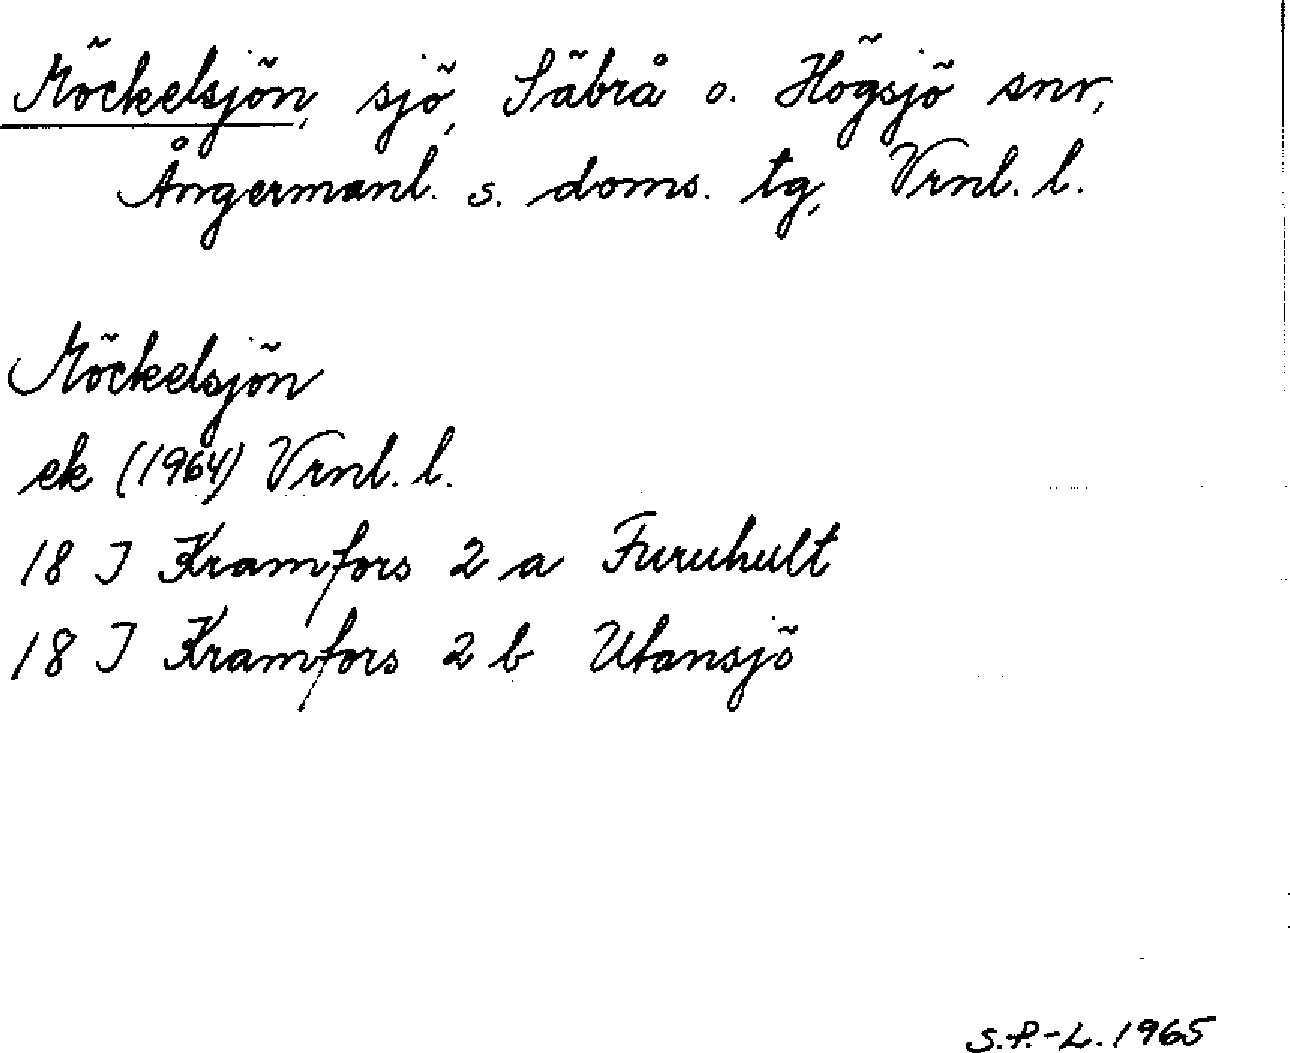 Möckelsjön, sjö, Säbrå o. Högsjö snr,
Ångermanl. s. doms. tg, Vrnl. l.
Möckelsjön
ek (1964) Vrnl. l.
18 I Kramfors 2 a Furuhult
18 I Kramfors 2 b Utansjö
S.P.-L. 1965